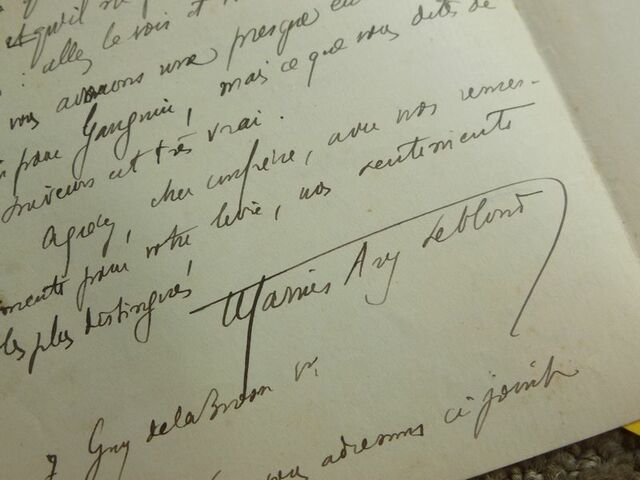 et qu'il
allez le vois et
vous avouons une presque
pour Gauguin, mais ce que vous dites de
suiveurs est très vrai.
Agréez, cher confrère, avec nos remer-
ciments pour votre livre, nos sentiments
les plus distingués
Marius Ary Leblond
7 Guy de la Brosse Vᵉ.
vous adressons ci joint